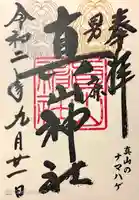 奉拝
男鹿
真山神社
真山の
ナマハゲ
令和二年九月廿一日